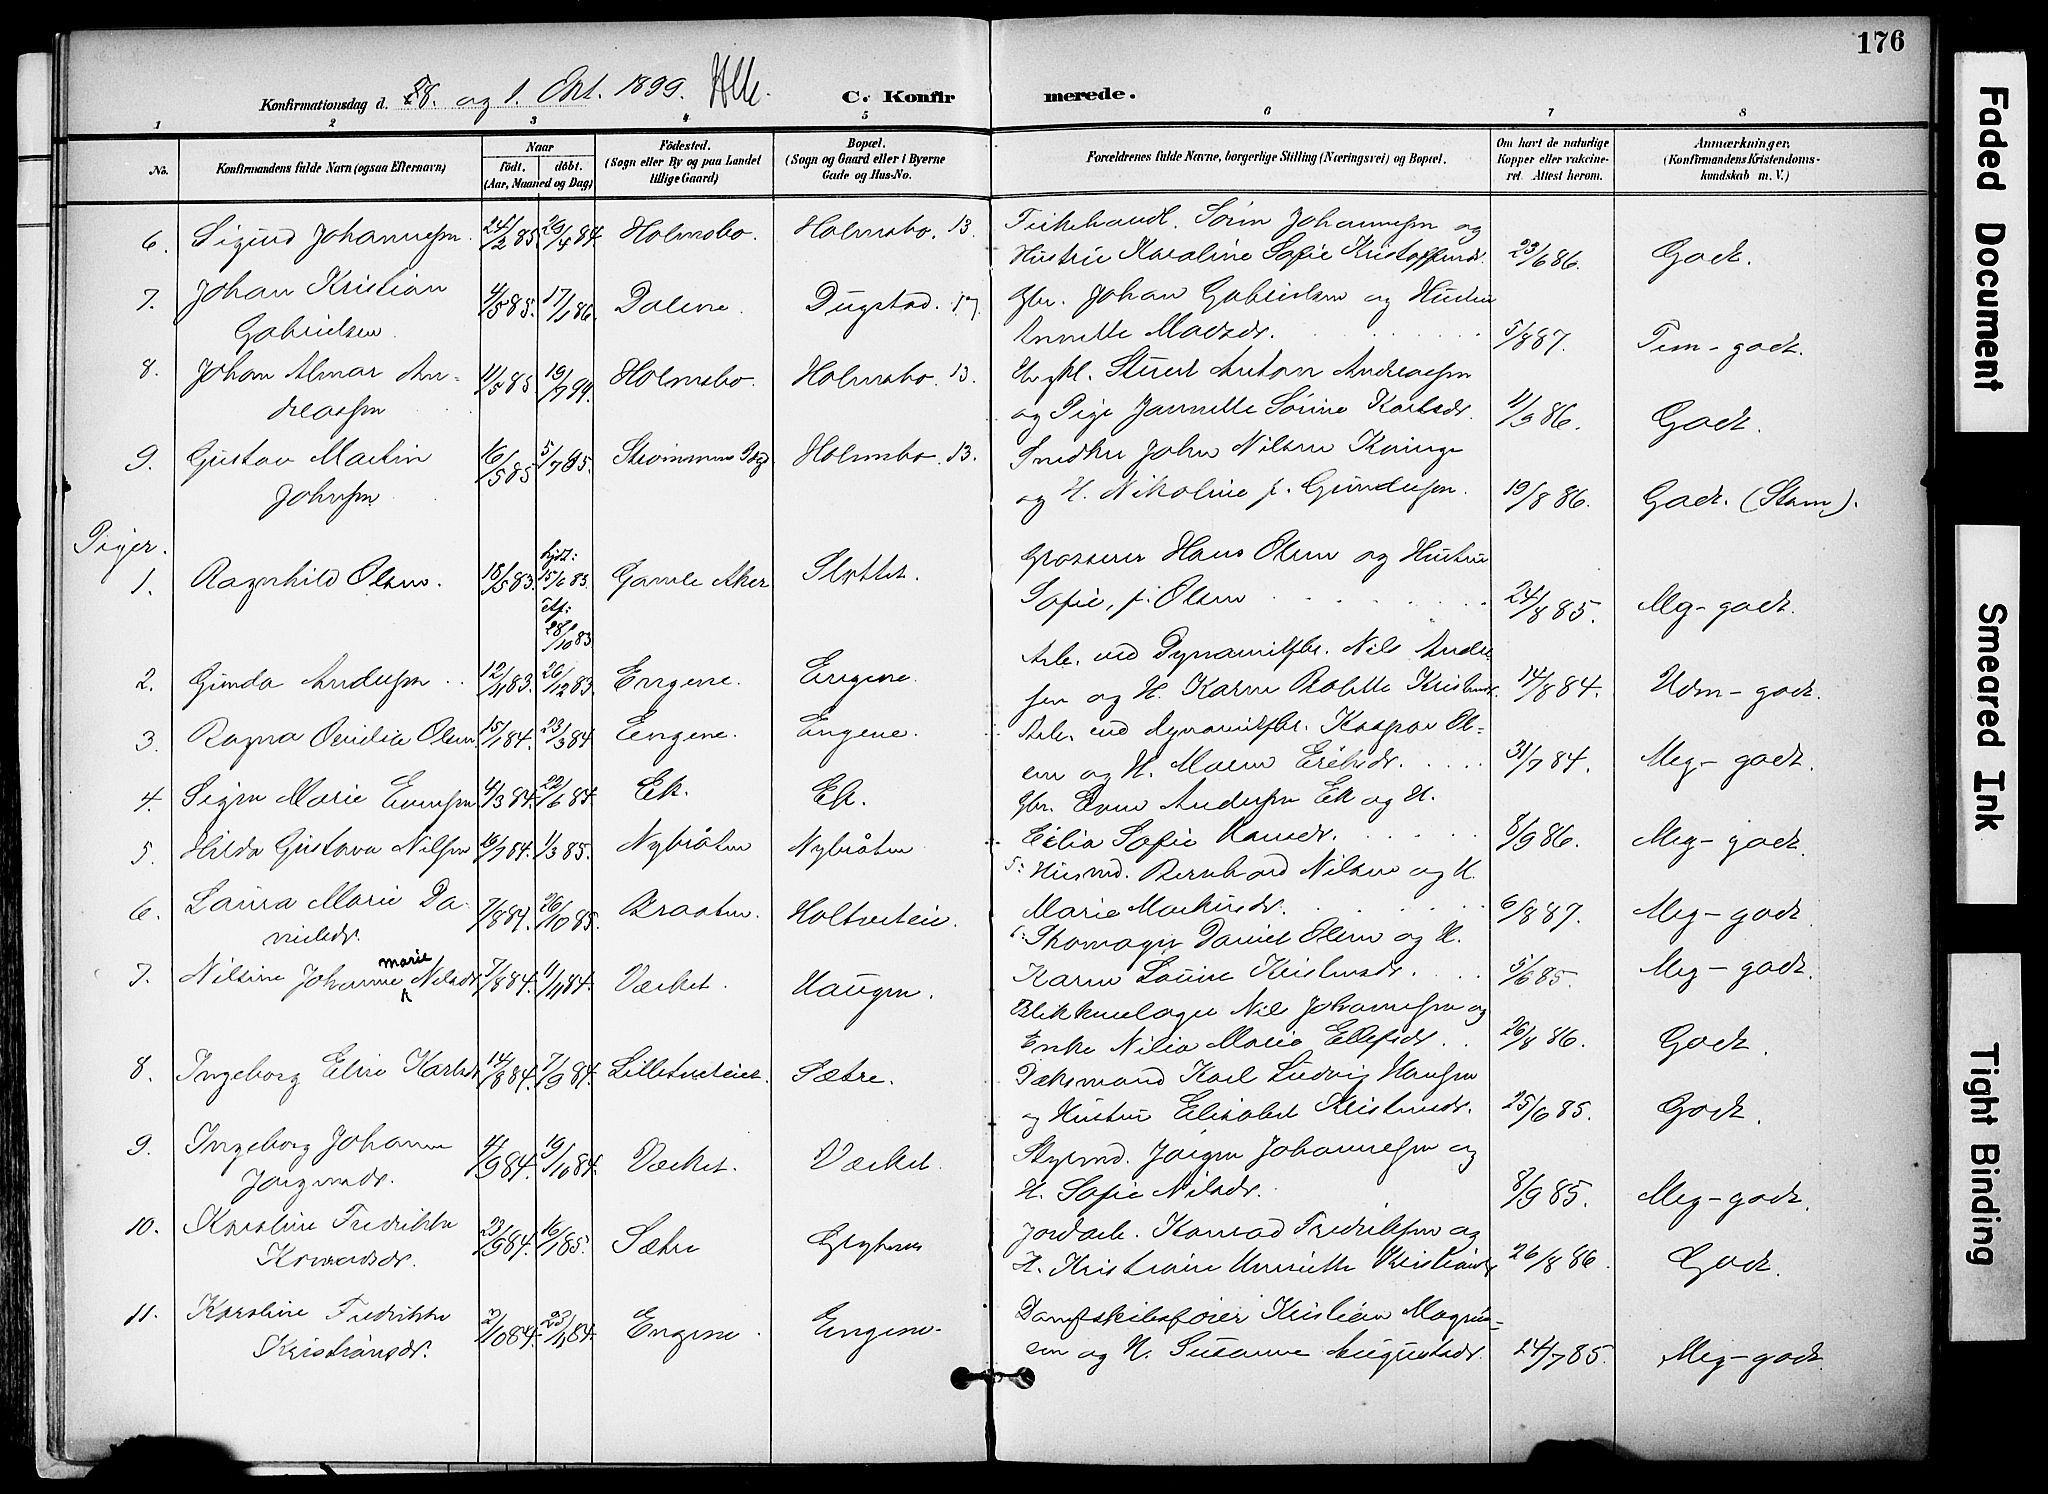 176
Konfirmationsdag d. 28. og 1. Okt. 1899.
C. Konfir merede.
1 2 3 4 5 6 7 8
No. Konfirmandens fulde Navn (ogsaa Efternavn) Naar født. døbt. (Aar, Maaned og Dag) Födested. (Sogn eller By og paa Landet tillige Gaard) Bopæl. (Sogn og Gaard eller i Byerne Gade og Hus-No. Forældrenes fulde Navne, borgerlige Stilling (Næringsvei) og Bopæl. Om havt de naturlige Kopper eller vakcineret. Attest herom. Anmærkninger. (Konfirmandens Kristendomskundskab m. V.)
6. Sigurd Johannesen. 24/2 85. 20/4 84. Holmsbo. Holmsbo. 13. Fiskehandl. Sörin Johannesen og
Hustru Karoline Sofie Kristoffersdr. 23/6 86. Godt.
7. Johan Kristian 4/5 85. 17/1 86. Dalene. Dugstad. 17. Gbr. Johan Gabrielsen og Hustru
Gabrielsen. Annette Madsdr. 5/8 87. Tem-godt.
8. Johan Almar An- 11/5 85. Holmsbo. Holmsbo. 13. Ungkl. Anton Andreassen
dreassen og Pige Jannette Sörine Karlsdr. 11/9 86. Godt.
9. Gustav Martin 16/5 85 5/7 85. Holmsbo. 13. Snedker John Nilsen
Johnsen. og H. Nikoline f. Gundersen. 19/8 86. Godt. (Stam).
Piger.
1. Ragnhild Olsen. 18/5 83. hjdt: 15/6 83. 28/10 83. Gamle Aker Slottet. Grosserer Hans Olsen og Hustru
Sofie, f. Olsen 24/8 85. Meg-godt.
2. Gunda Andersen 12/11 83. 26/12 83. Engene. Engene. Arb. ved Dynamitfbr. Nils Ander-
sen og H. Karen Bolette 14/8 84. Udm-godt.
3. Ragna Cecilia Olsen 15/1 84. 23/3 84. Engene. Engene. Arb. ved dynamitfbr. Kaspar Ol-
sen og H. Maren Eriksdr. 31/7 84. Meg-godt.
4. Signe Marie Evensen 4/3 84. 22/6 84. Ek. Ek. Gbr. Even Andersen Ek og H.
Eilia Sofie Hansdr. 8/9 86. Meg-godt.
5. Hilda Gustava Nilsen 1/3 85. Nybråten Nybråten 5: Husmd. Bernhard Nilsen og H.
Marie Martinsdr. 6/8 87. Meg-godt.
6. Laura Marie Da- 7/8 84. 26/10 85. Braaten. Holtveteie.
nielsdr. Daniel Olsen og H.
Karen Lovise Kristensdr. 5/6 85. Meg-godt.
7. Nilsine Johanne marie Nilsdr 7/8 84. 11/11 84. Værket. Haugen.
Nils Johannesen og
Enke Nilia Maria Ellefsdr. 26/8 86. Godt.
8. Ingeborg Elise Karlsdr 14/8 84. 7/9 84. Sætre. Dæksmand Karl Ludvig Hansen
og Hustru Elisabet Kristensdr. 25/6 85. Godt.
9. Ingeborg Johanne 4/9 84. 19/10 84. Værket. Værket. Styrmd. Jörgen Johannesen og
Jörgensdr. H. Sofie Nilsdr. 8/9 85. Meg-godt.
10. Karoline Fredrikke 23/9 84. 16/1 85. Sætre Jordarb. Konrad Fredriksen og
Konradsdr. H. Kristiane Henriette 26/8 86. Godt.
11. Karoline Fredrikke 2/10 84. Engene. Engene. Damfskibsförer Kristian Magnus-
Kristiansdr. sen og H. Susanne Augustadr. 24/7 85. Meg-godt.
Faded Document
Smeared Ink
Tight Binding